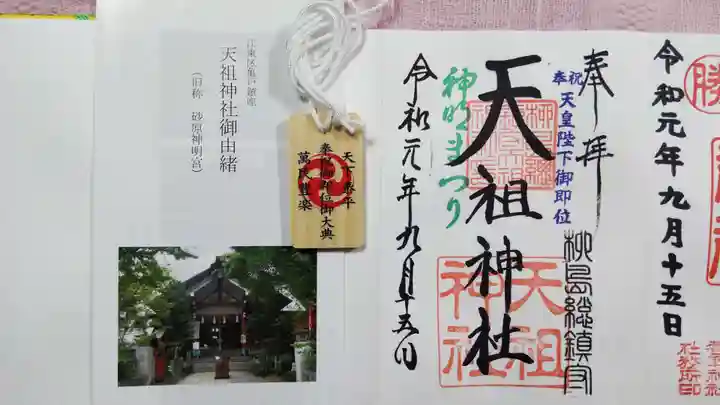 江東区亀戸鎮座
天祖神社御由緒
(旧称 砂原神明宮)
天下泰平
奉祝御即位御大典
萬民豊楽
奉拝
奉祝 天皇陛下御即位
柳島総鎮守
天祖神社
天祖神社
神明まつり
令和元年九月十五日
令和元年九月十五日
勝